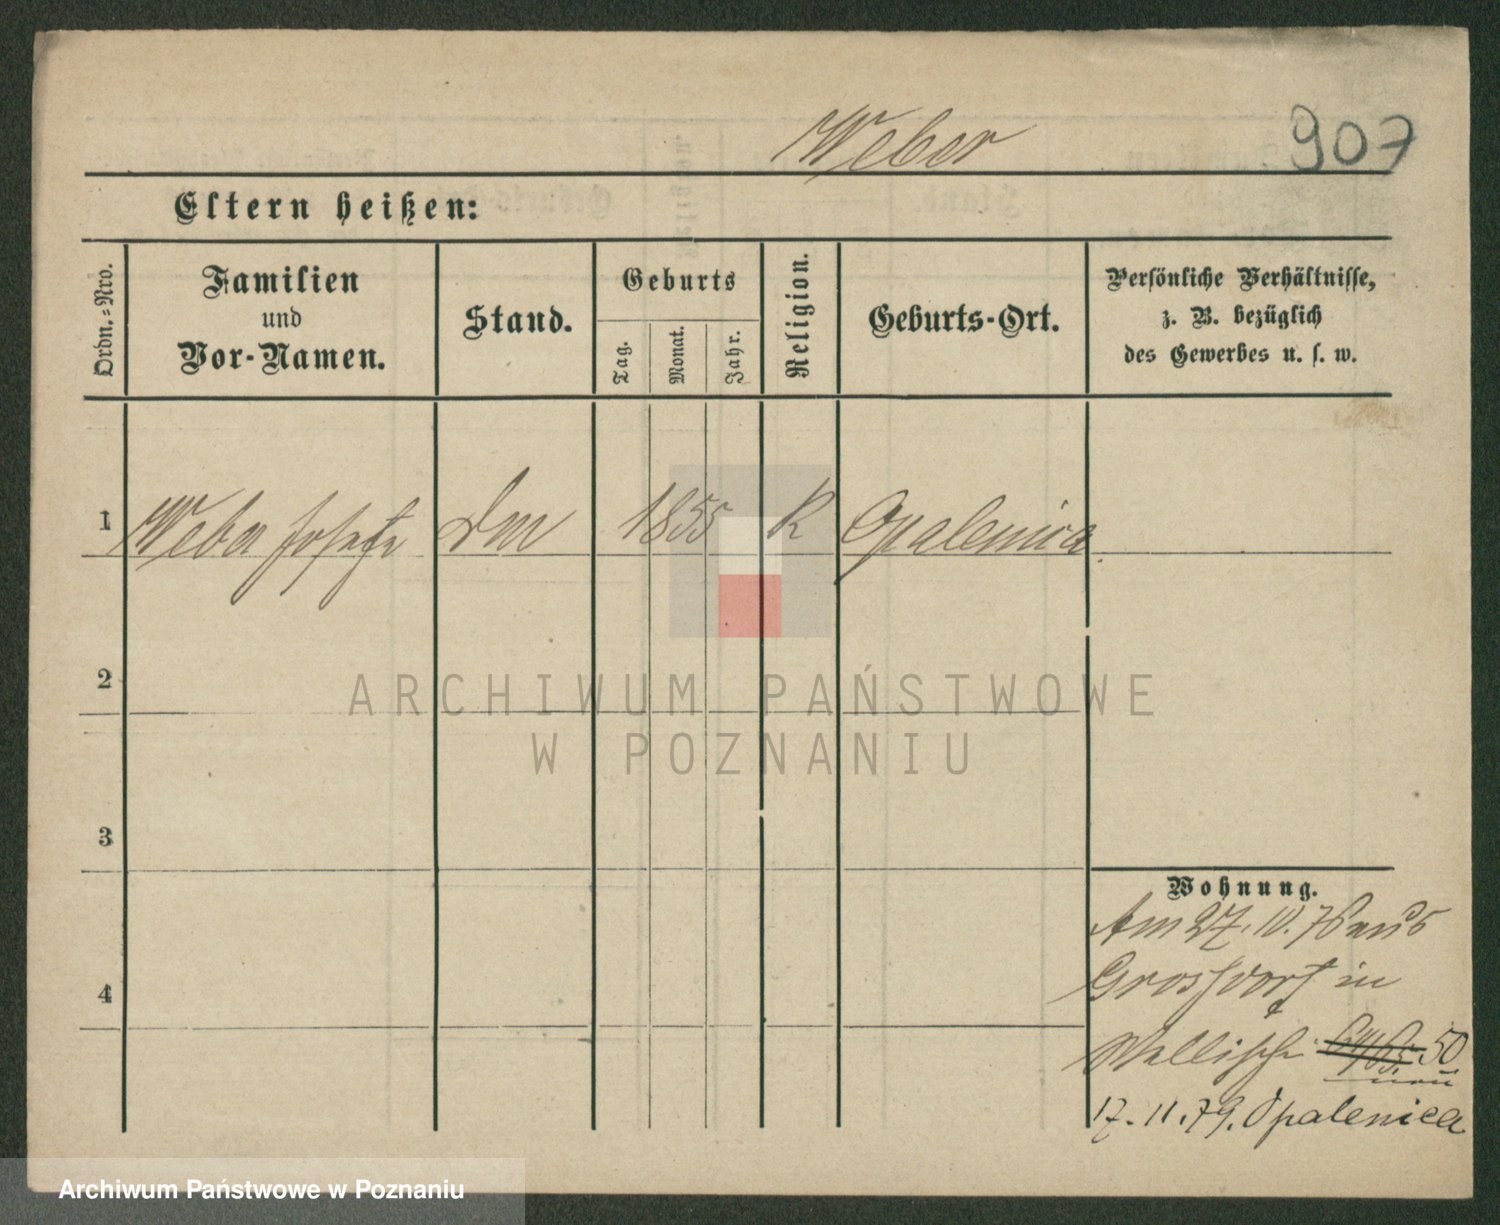 Weber
907
Eltern heißen:
Ordn.=Nro.
Familien
und
Vor-Namen.
Stand.
Geburts
Tag.
Monat.
Jahr.
Religion.
Geburts-Ort.
Persönliche Verhältnisse,
z. B. bezüglich
des Gewerbes u. s. w.
1 Weber Josefa 1855 K Opalenica
2
ARCHIWUM PAŃSTWOWE
W POZNANIU
3
Wohnung.
Am 27. 10. 76 aus
4
Grossdorf in
Wallische 50
neu
17. 11. 79. Opalenica
Archiwum Państwowe w Poznaniu